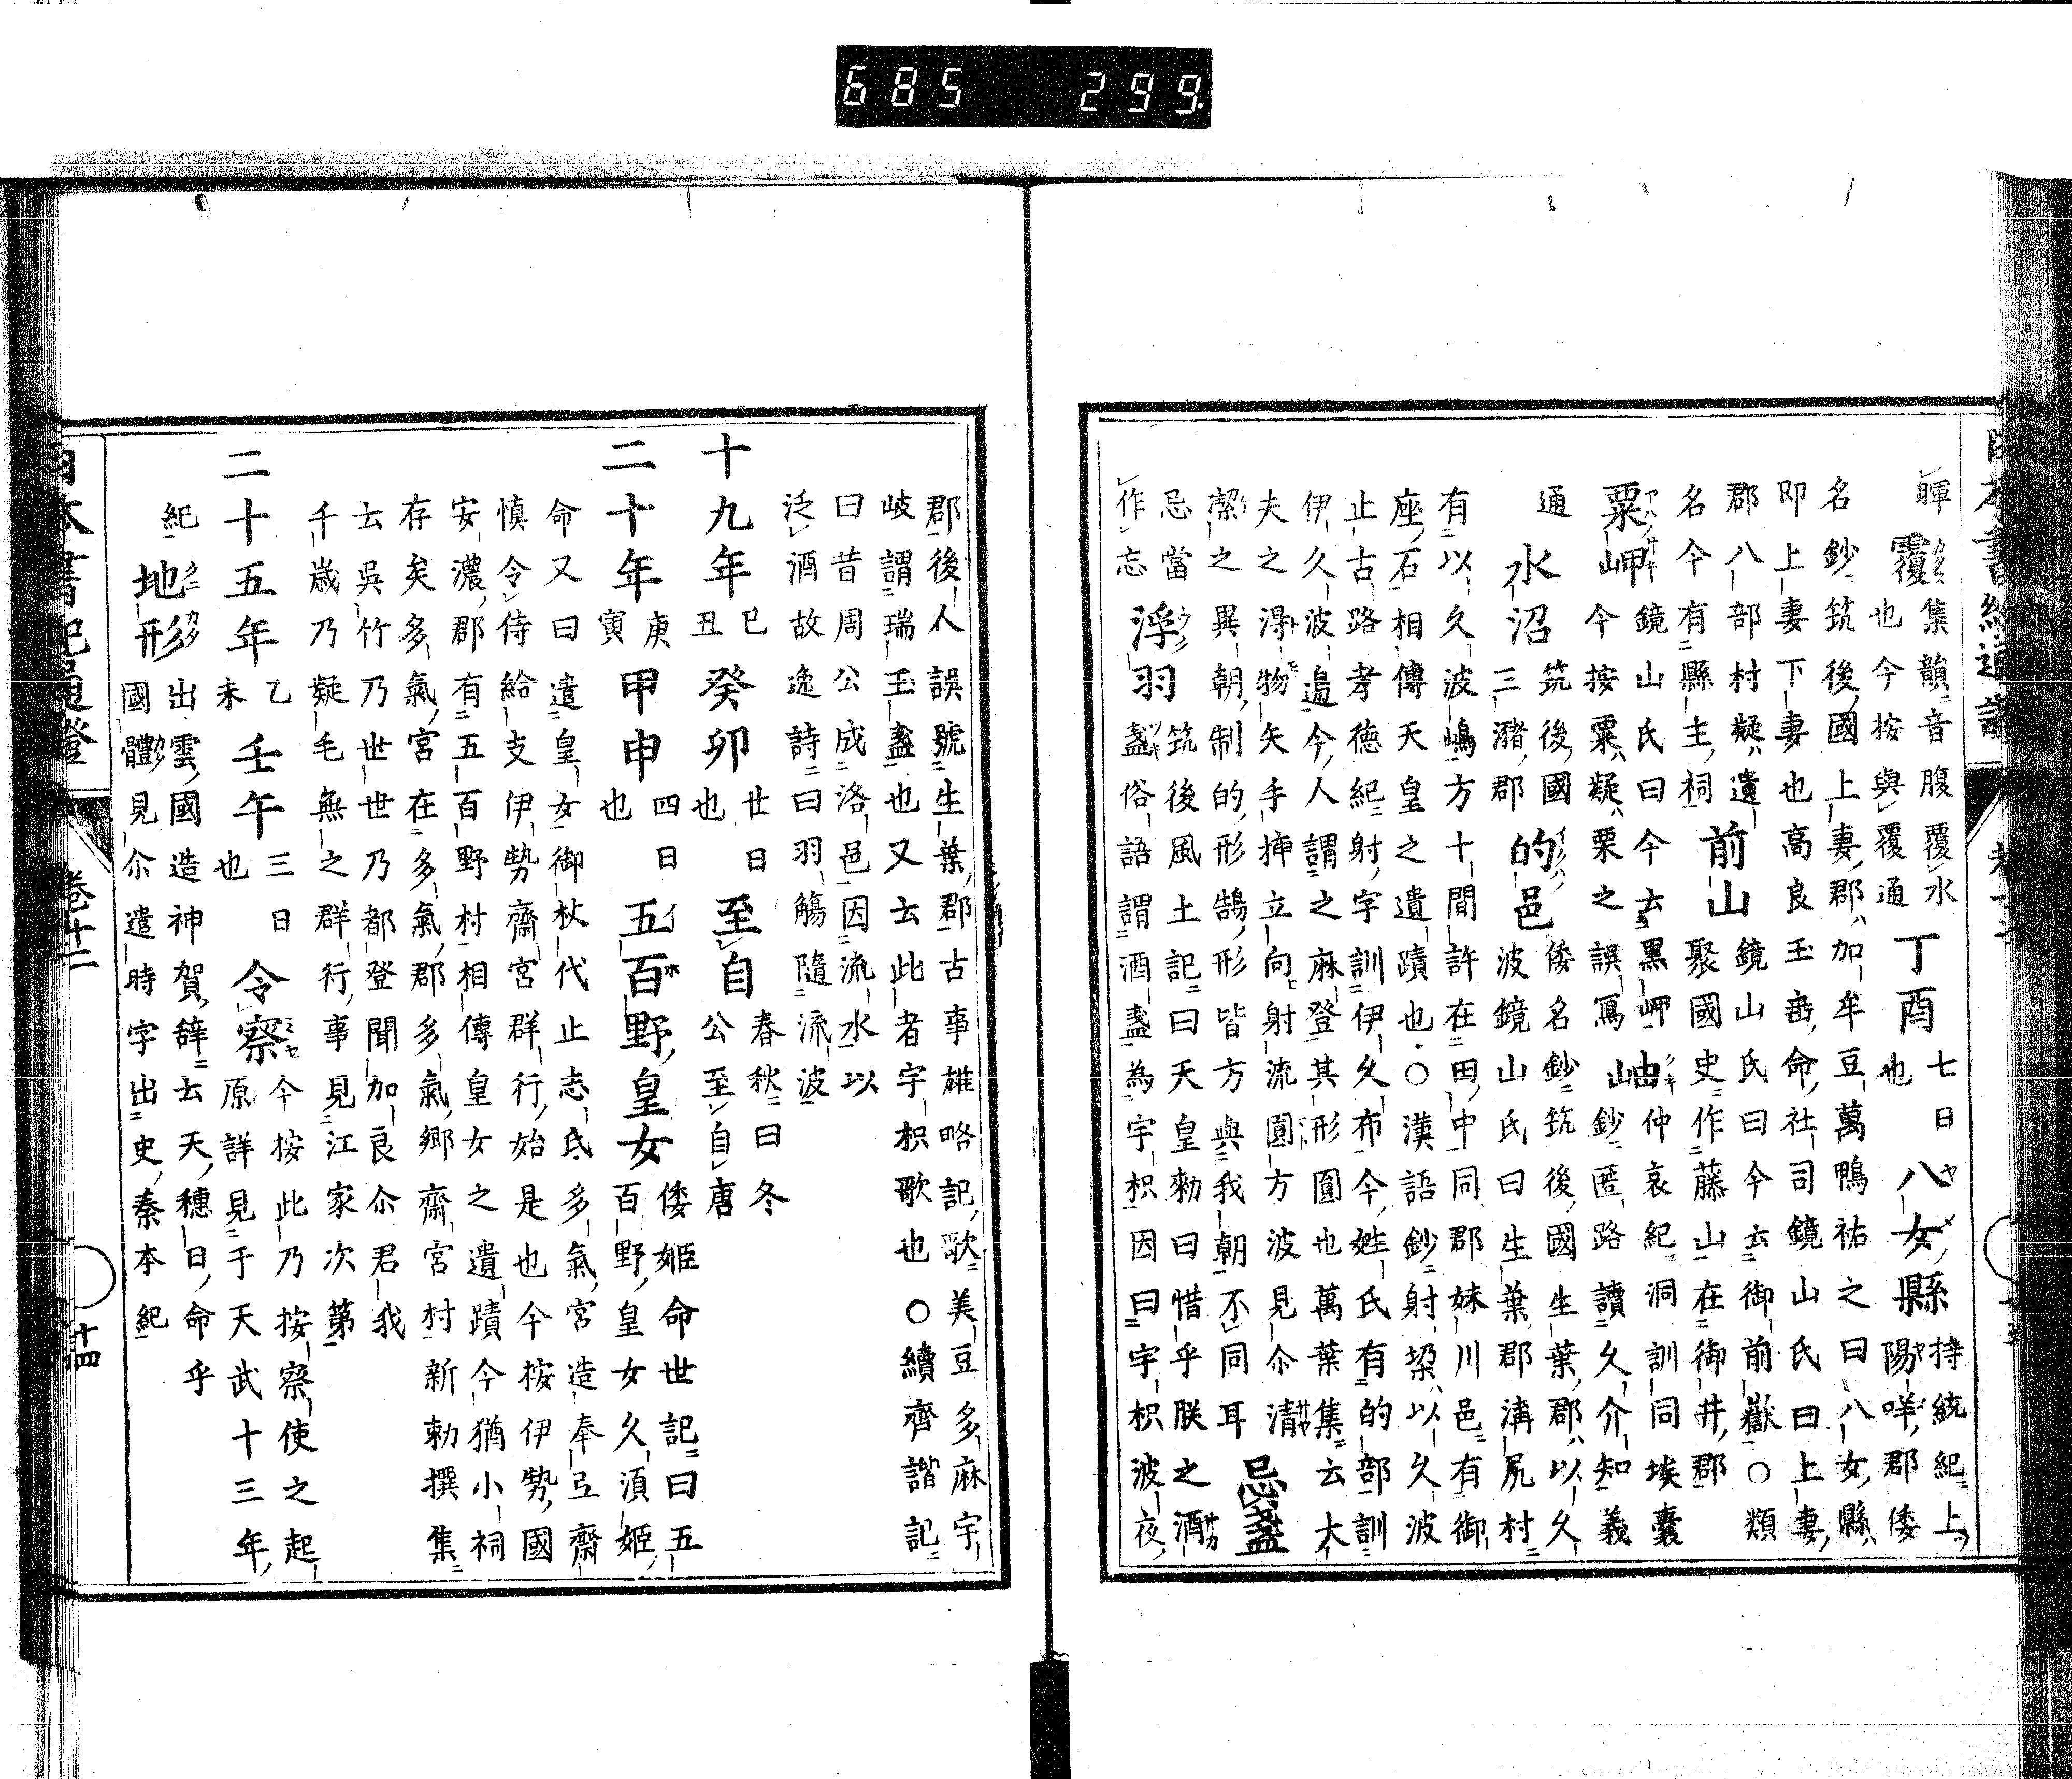 685 299
日本書紀通證
暉 覆 集韻音腹覆水
也今按與覆通 丁酉 七日
也 八女縣 持統紀上
陽咩郡倭
名鈔筑後國上妻郡加牟豆萬鴨祐之曰八女縣
即上妻下妻也高良玉垂命社司鏡山氏曰上妻
郡八部村疑遺名今有縣主祠 前山 鏡山氏曰今云御前嶽○類
聚國史作藤山在御井郡
粟岬 鏡山氏曰今云黒岬
今按粟疑栗之誤寫 岫 仲哀紀洞訓同埃囊
鈔匿路讀久介知義
通 水沼 筑後國
三瀦郡 的邑 倭名鈔筑後國生葉郡以久
波鏡山氏曰生葉郡溝尻村
有以久波嶋方十間許在田中同郡妹川邑有御
座石相傳天皇之遺蹟也○漢語鈔射垜以久波
止古路孝徳紀射字訓伊久布今姓氏有的部訓
伊久波追今人謂之麻登其形圓也萬葉集云大
夫之得物矢手挿立向射流圓方波見尓清
潔之異朝制的形鵠形皆方與我朝不同耳 忌盞
忌當
作忘 浮羽 筑後風土記曰天皇勅曰惜乎朕之酒
盞俗語謂酒盞為宇枳因曰宇枳波夜
郡後人誤號生葉郡古事雄略記歌美豆多麻宇
岐謂瑞玉盞也又云此者宇枳歌也○續齊諧記
曰昔周公成洛邑因流水以
泛酒故逸詩曰羽觴隨流波
十九年 巳
丑 癸卯 廿日
也 至自 春秋曰冬
公至自唐
二十年 庚
寅 甲申 四日
也 五百野皇女 倭姫命世記曰五
百野皇女久須姫
命又曰遣皇女御杖代止志氐多氣宮造奉弖齋
慎令侍給支伊勢齋宮群行始是也今按伊勢國
安濃郡有五百野村相傳皇女之遺蹟今猶小祠
存矣多氣宮在多氣郡多氣郷齋宮村新勅撰集
云呉竹乃世世乃都登聞加良尓君我
千歳乃疑毛無之群行事見江家次第
二十五年 乙
未 壬午 三日
也 令察 今按此乃按察使之起
原詳見于天武十三年
紀 地形 出雲國造神賀辞云天穗日命乎
國體見尓遣時字出史秦本紀
日本書紀通證 卷十二 十四